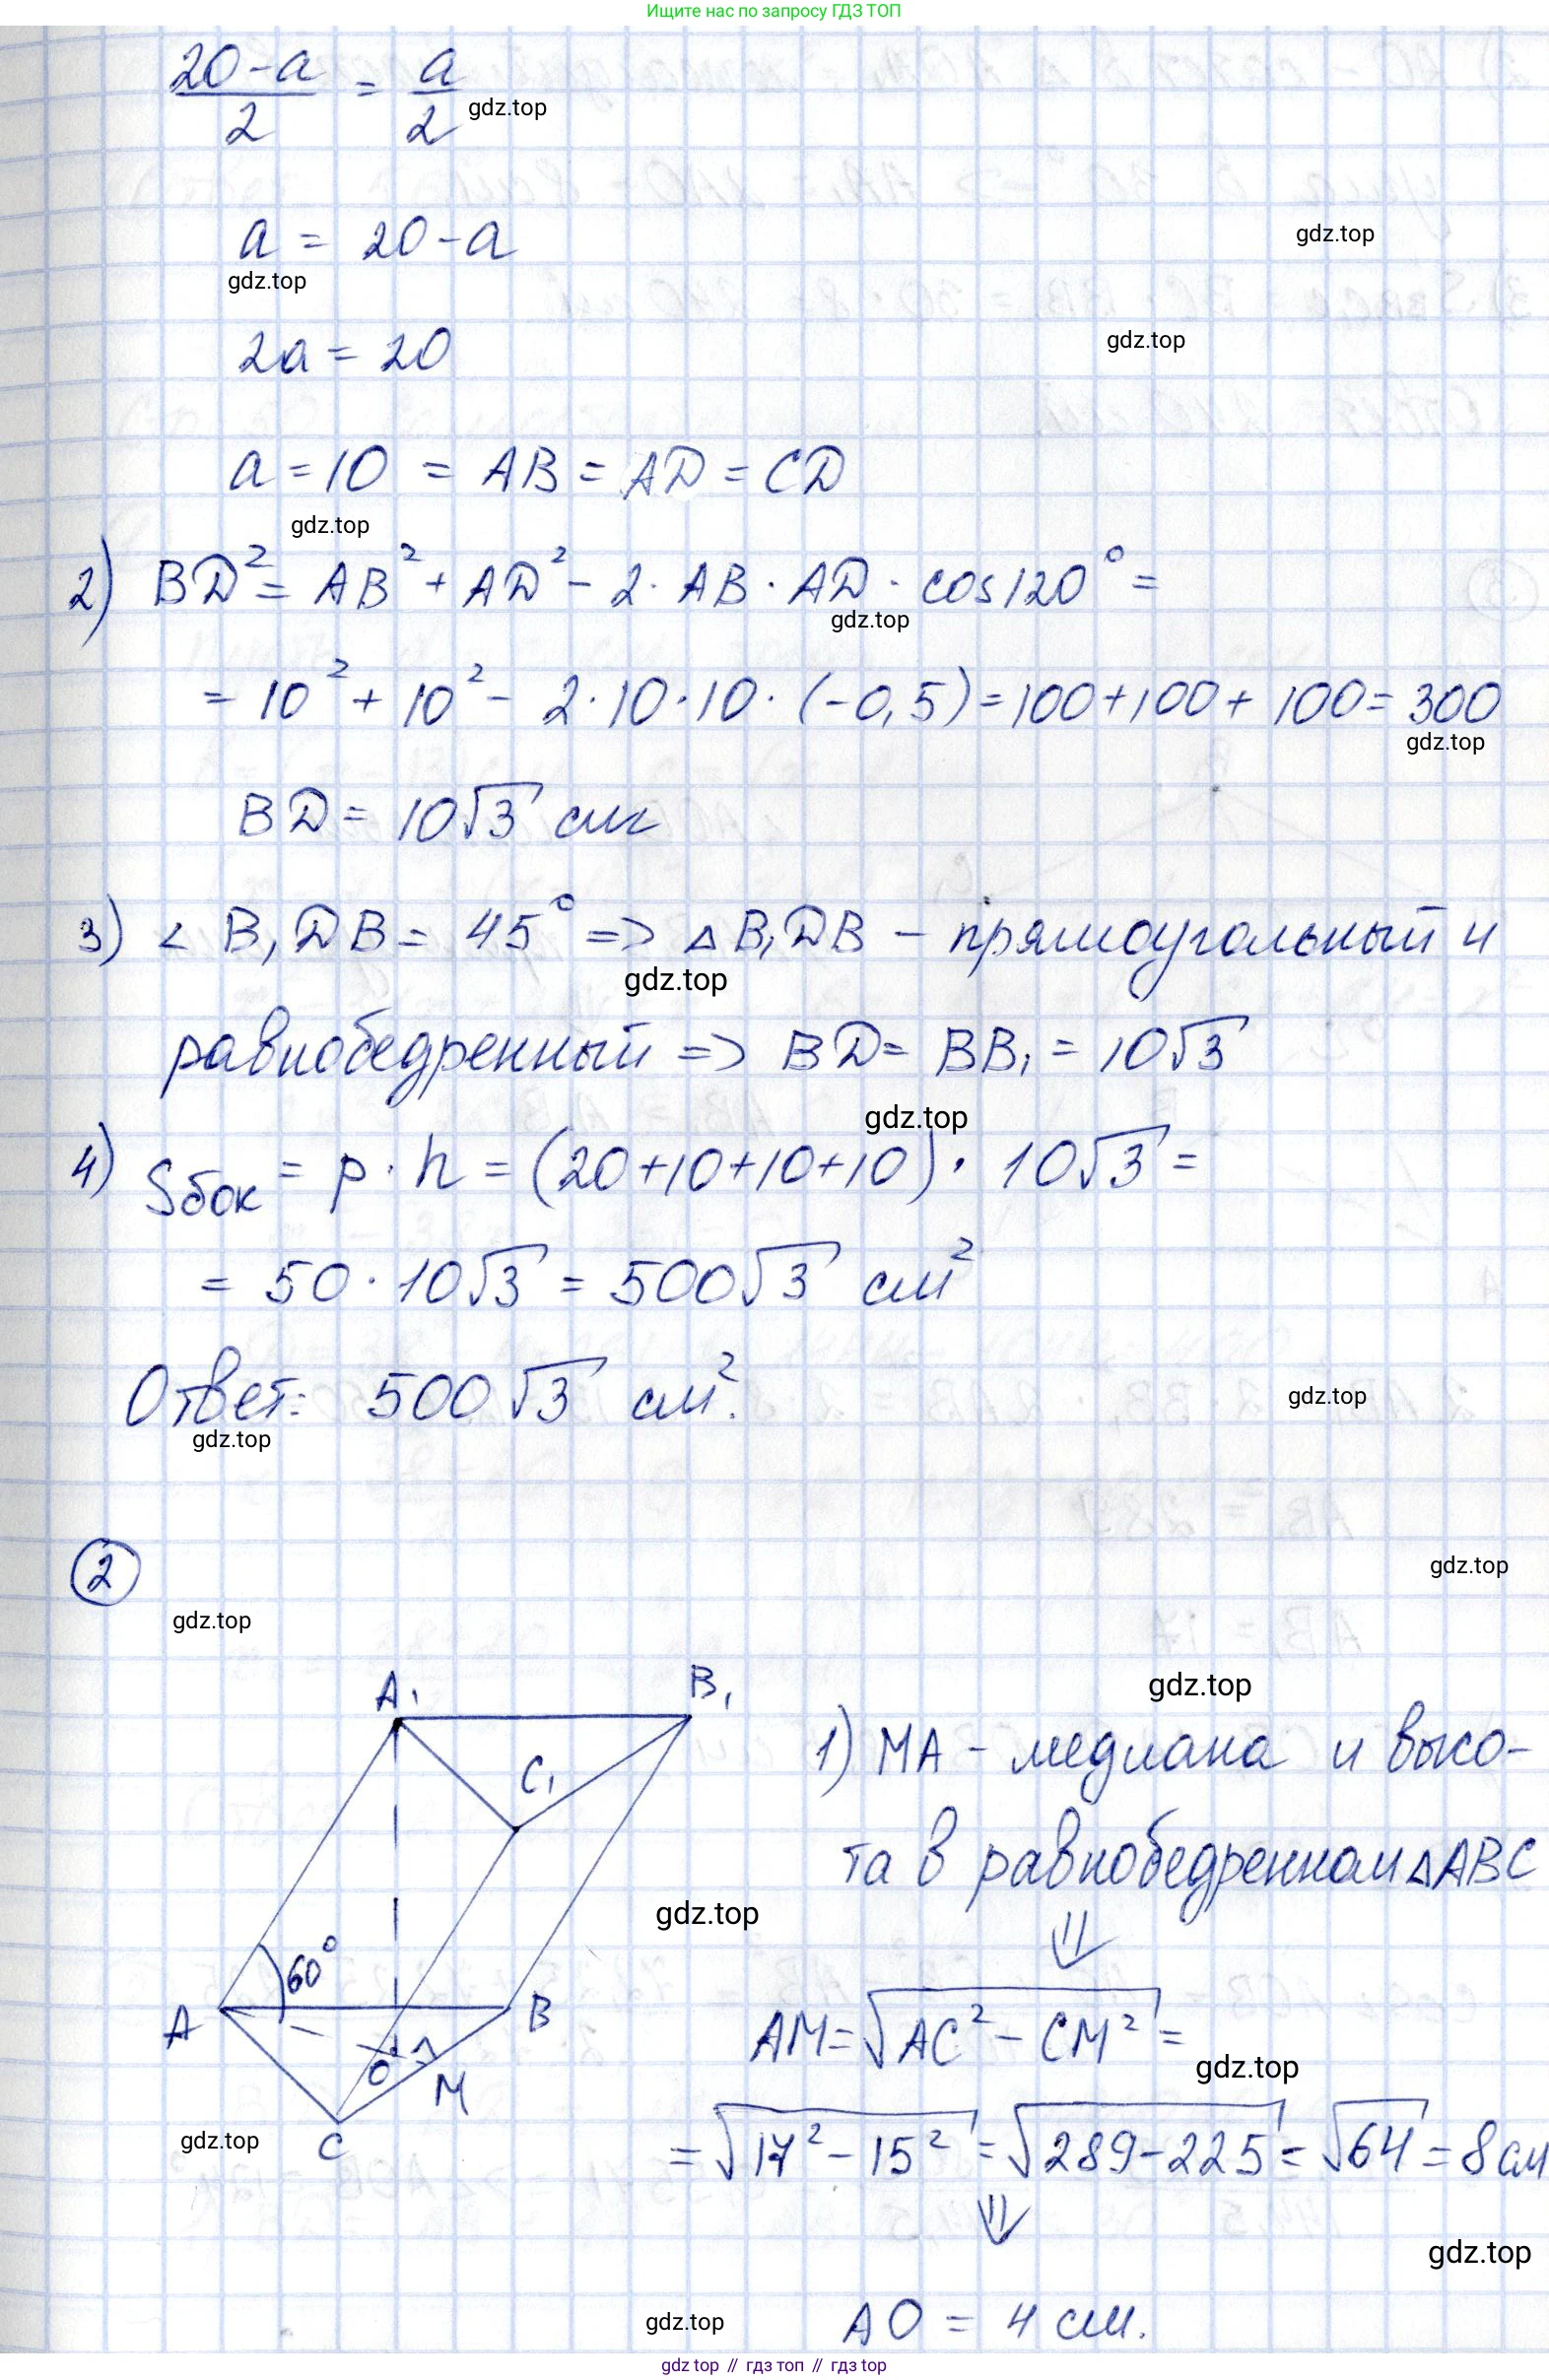 Ищите нас по запросу ГДЗ ТОП
(20-a)/2 = a/2
gdz.top
a = 20-a
gdz.top
gdz.top
2a = 20
gdz.top
a = 10 = AB = AD = CD
gdz.top
2) BD² = AB² + AD² - 2 · AB · AD · cos120° =
gdz.top
= 10² + 10² - 2·10·10·(-0,5) = 100+100+100 = 300
gdz.top
BD = 10√3 см
3) < B₁DB = 45° => △B₁DB - прямоугольный и
gdz.top
равнобедренный => BD = BB₁ = 10√3
gdz.top
4) Sбок = p · h = (20+10+10+10) · 10√3 =
= 50 · 10√3 = 500√3 см²
Ответ: 500√3 см².
gdz.top
gdz.top
2
gdz.top
gdz.top
A₁
B₁
gdz.top
C₁
1) MA - медиана и высо-
та в равнобедренном △ABC
gdz.top
⇓
60°
A
B
O
M
C
AM = √(AC² - CM²) =
gdz.top
gdz.top
= √(17² - 15²) = √(289-225) = √64 = 8 см
⇓
gdz.top
AO = 4 см.
gdz.top
gdz top // гдз топ // gdz.top